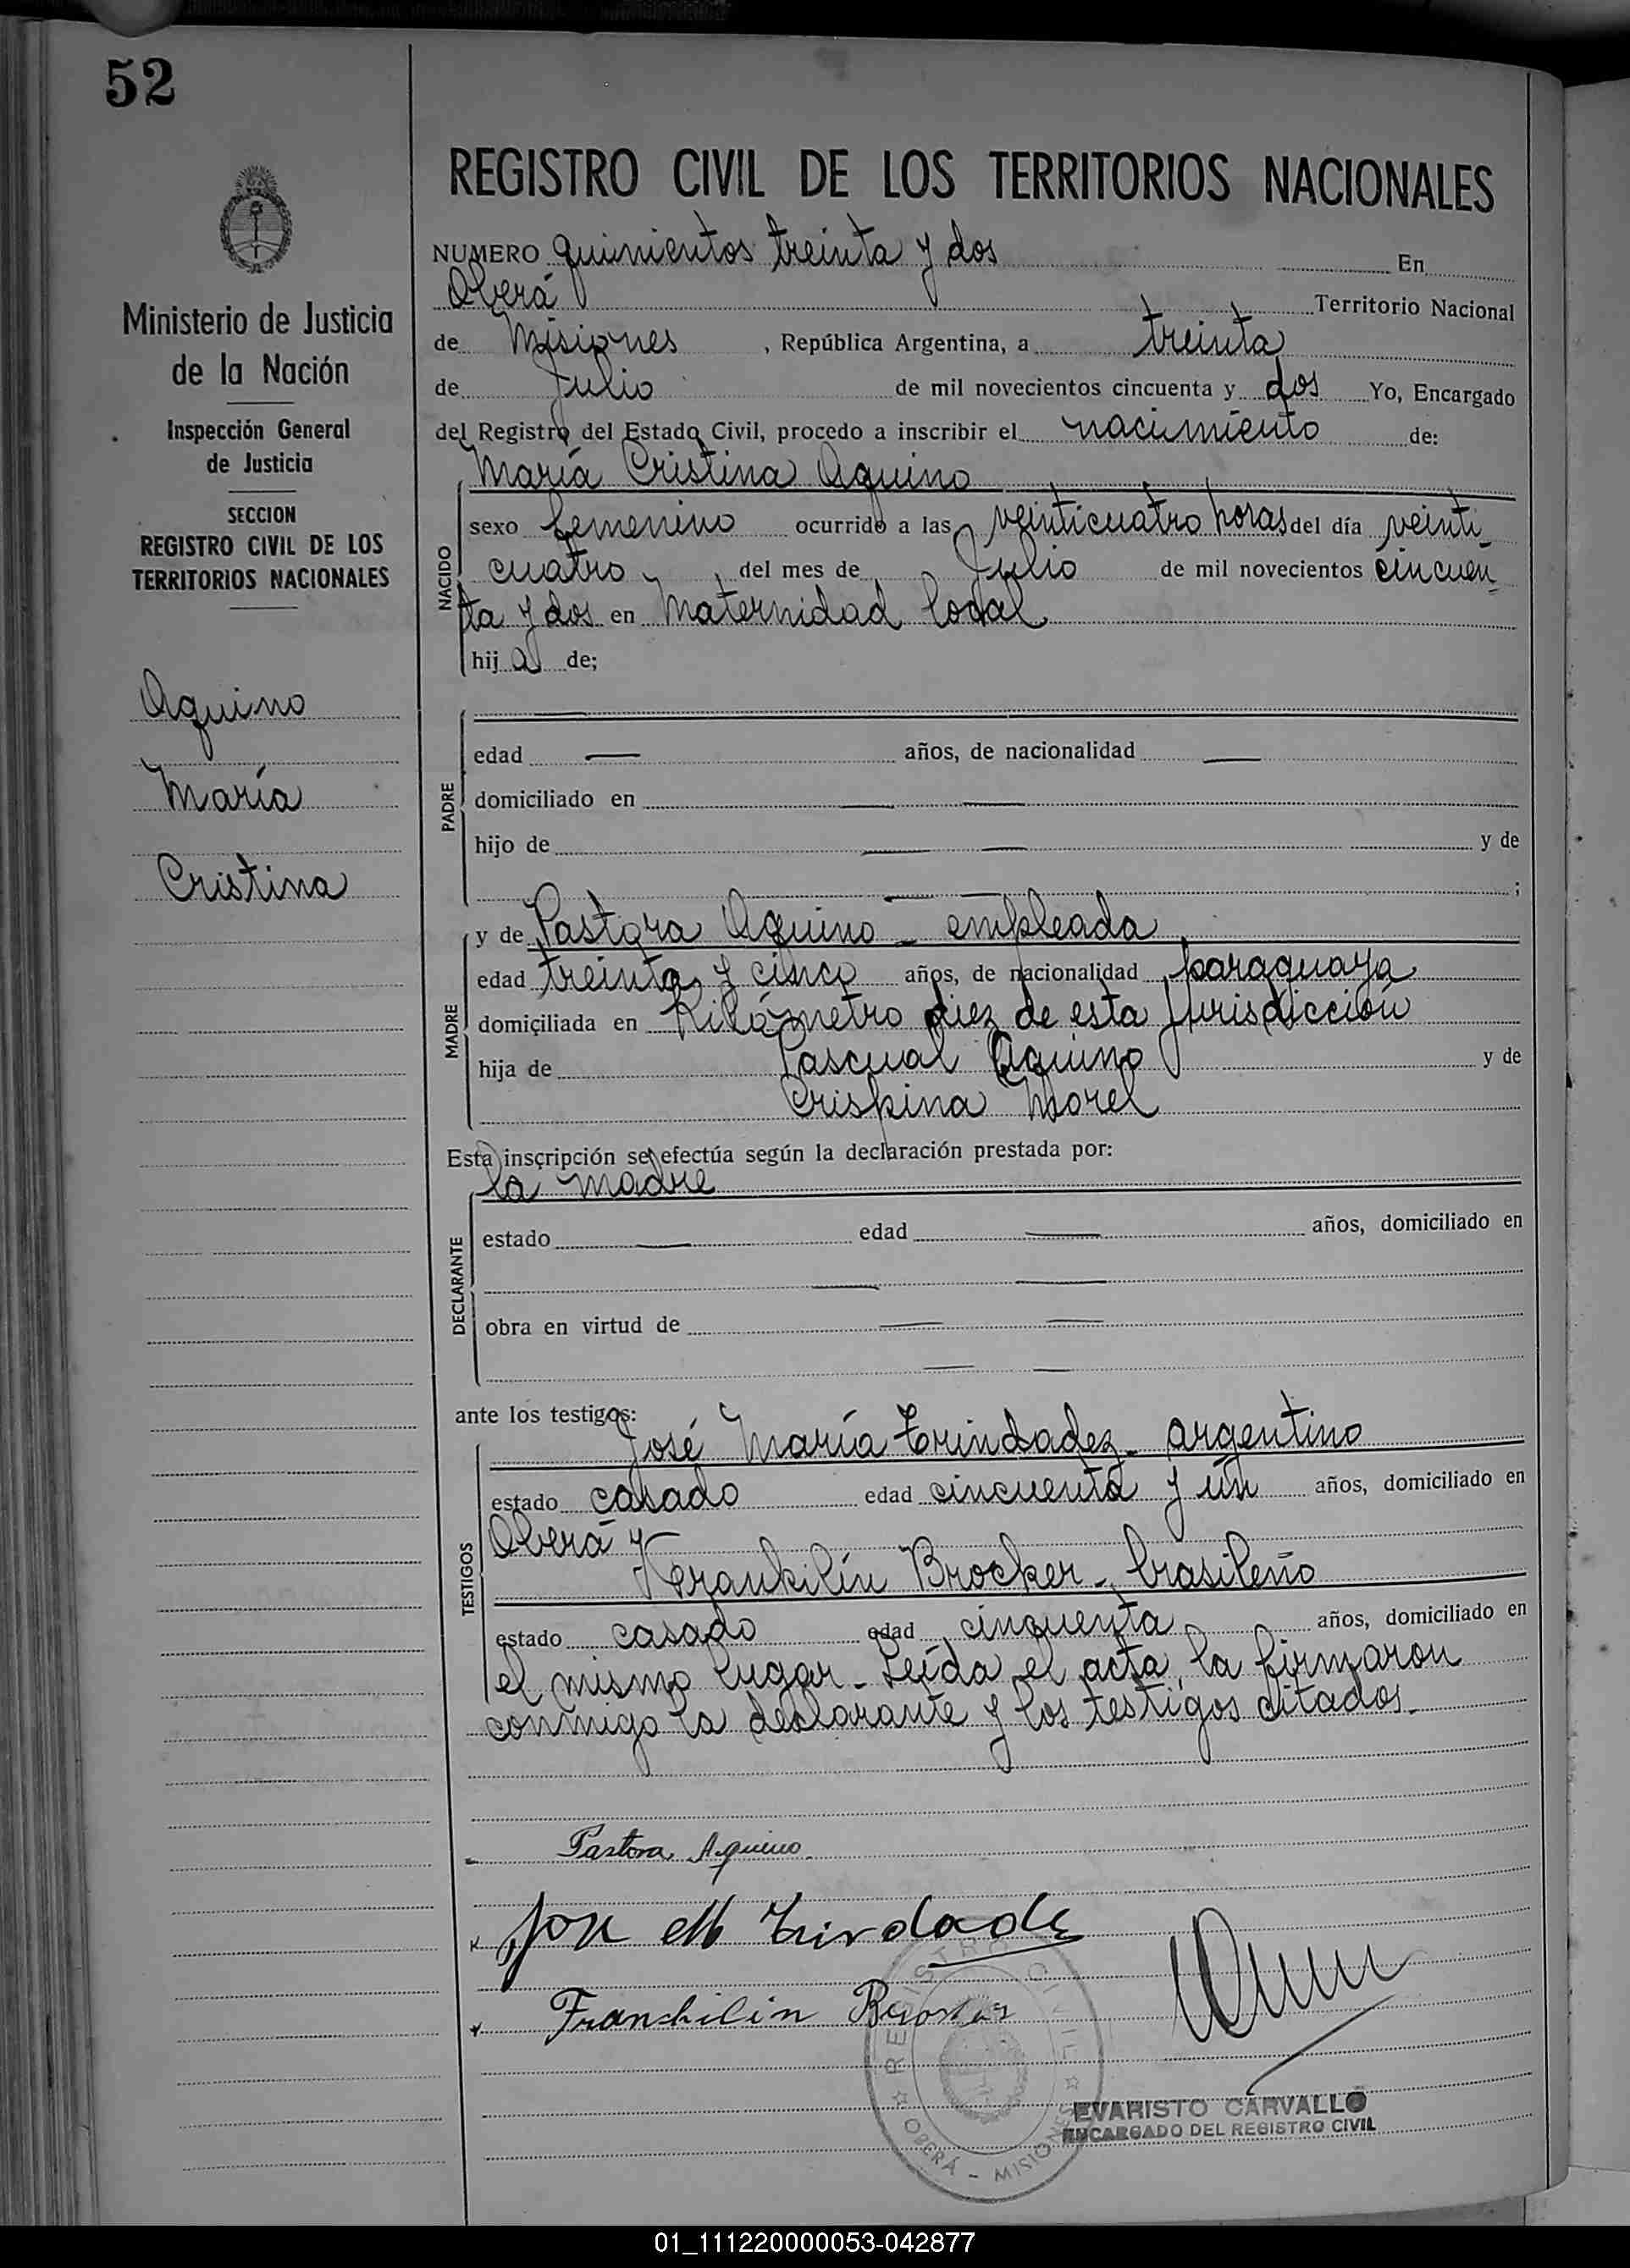 52
REGISTRO CIVIL DE LOS TERRITORIOS NACIONALES
NUMERO quinientos treinta y dos En
Oberá Territorio Nacional
de Misiones, República Argentina, a treinta
de Julio de mil novecientos cincuenta y dos Yo, Encargado
del Registro del Estado Civil, procedo a inscribir el nacimiento de:
María Cristina Aquino
NACIDO
sexo femenino ocurrido a las veinticuatro horas del día veinti
cuatro, del mes de Julio de mil novecientos cincuen
ta y dos en Maternidad local
hija de;
Ministerio de Justicia
de la Nación
Inspección General
de Justicia
SECCION
REGISTRO CIVIL DE LOS
TERRITORIOS NACIONALES
Aquino
María
Cristina
PADRE
edad — años, de nacionalidad —
domiciliado en — —
hijo de — — y de
— — ;
MADRE
y de Pastora Aquino - empleada
edad treinta y cinco años, de nacionalidad paraguaya
domiciliada en Kilómetro diez de esta Jurisdicción
hija de Pascual Aquino y de
Crispina Morel
Esta inscripción se efectúa según la declaración prestada por:
la madre
DECLARANTE
estado — edad — años, domiciliado en
— —
obra en virtud de — —
— —
ante los testigos:
TESTIGOS
José María Trindadez - argentino
estado casado edad cincuenta y un años, domiciliado en
Oberá y
Frankilín Brocker - brasileño
estado casado edad cincuenta años, domiciliado en
el mismo lugar - Leída el acta, la firmaron
conmigo la declarante y los testigos citados.-
Pastora Aquino
Jose M Trindade
Frankilin
REGISTRO CIVIL
OBERÁ - MISIONES
EVARISTO CARVALLO
ENCARGADO DEL REGISTRO CIVIL
01_111220000053-042877